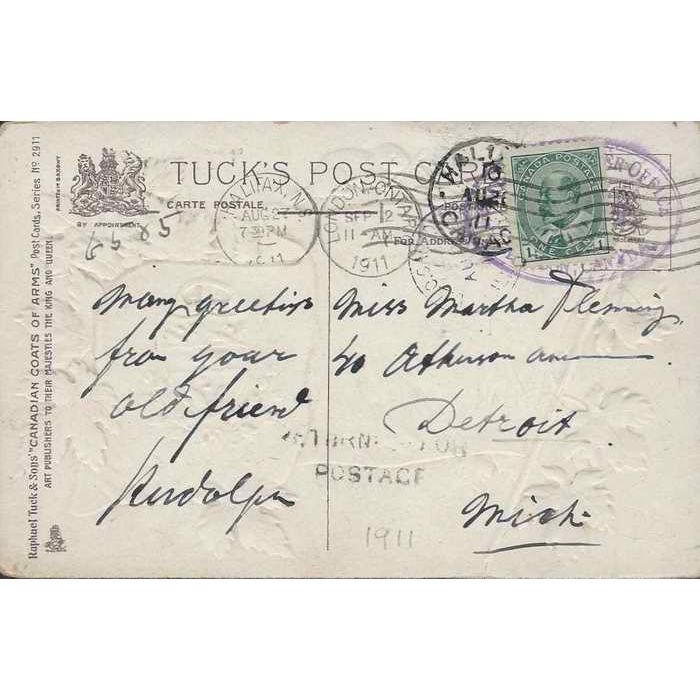 PRINTED IN SAXONY
BY APPOINTMENT.
TUCK'S POST CARD
CARTE POSTALE
FOR ADDRESS
Raphael Tuck & Sons' "CANADIAN COATS OF ARMS" Post Cards, Series Nº 2911
ART PUBLISHERS TO THEIR MAJESTIES THE KING AND QUEEN.
65 85
HALIFAX, N.S.
AUG 27
7 30 PM
1911
LONDON, ONT.
SEP 2
11 AM
1911
CANADA POSTAGE
ONE CENT
many greetings
from your
old friend
Rudolph
Miss Martha Flemming
40 Atkinson ave
Detroit
Mich.
RETURNED FOR
POSTAGE
1911